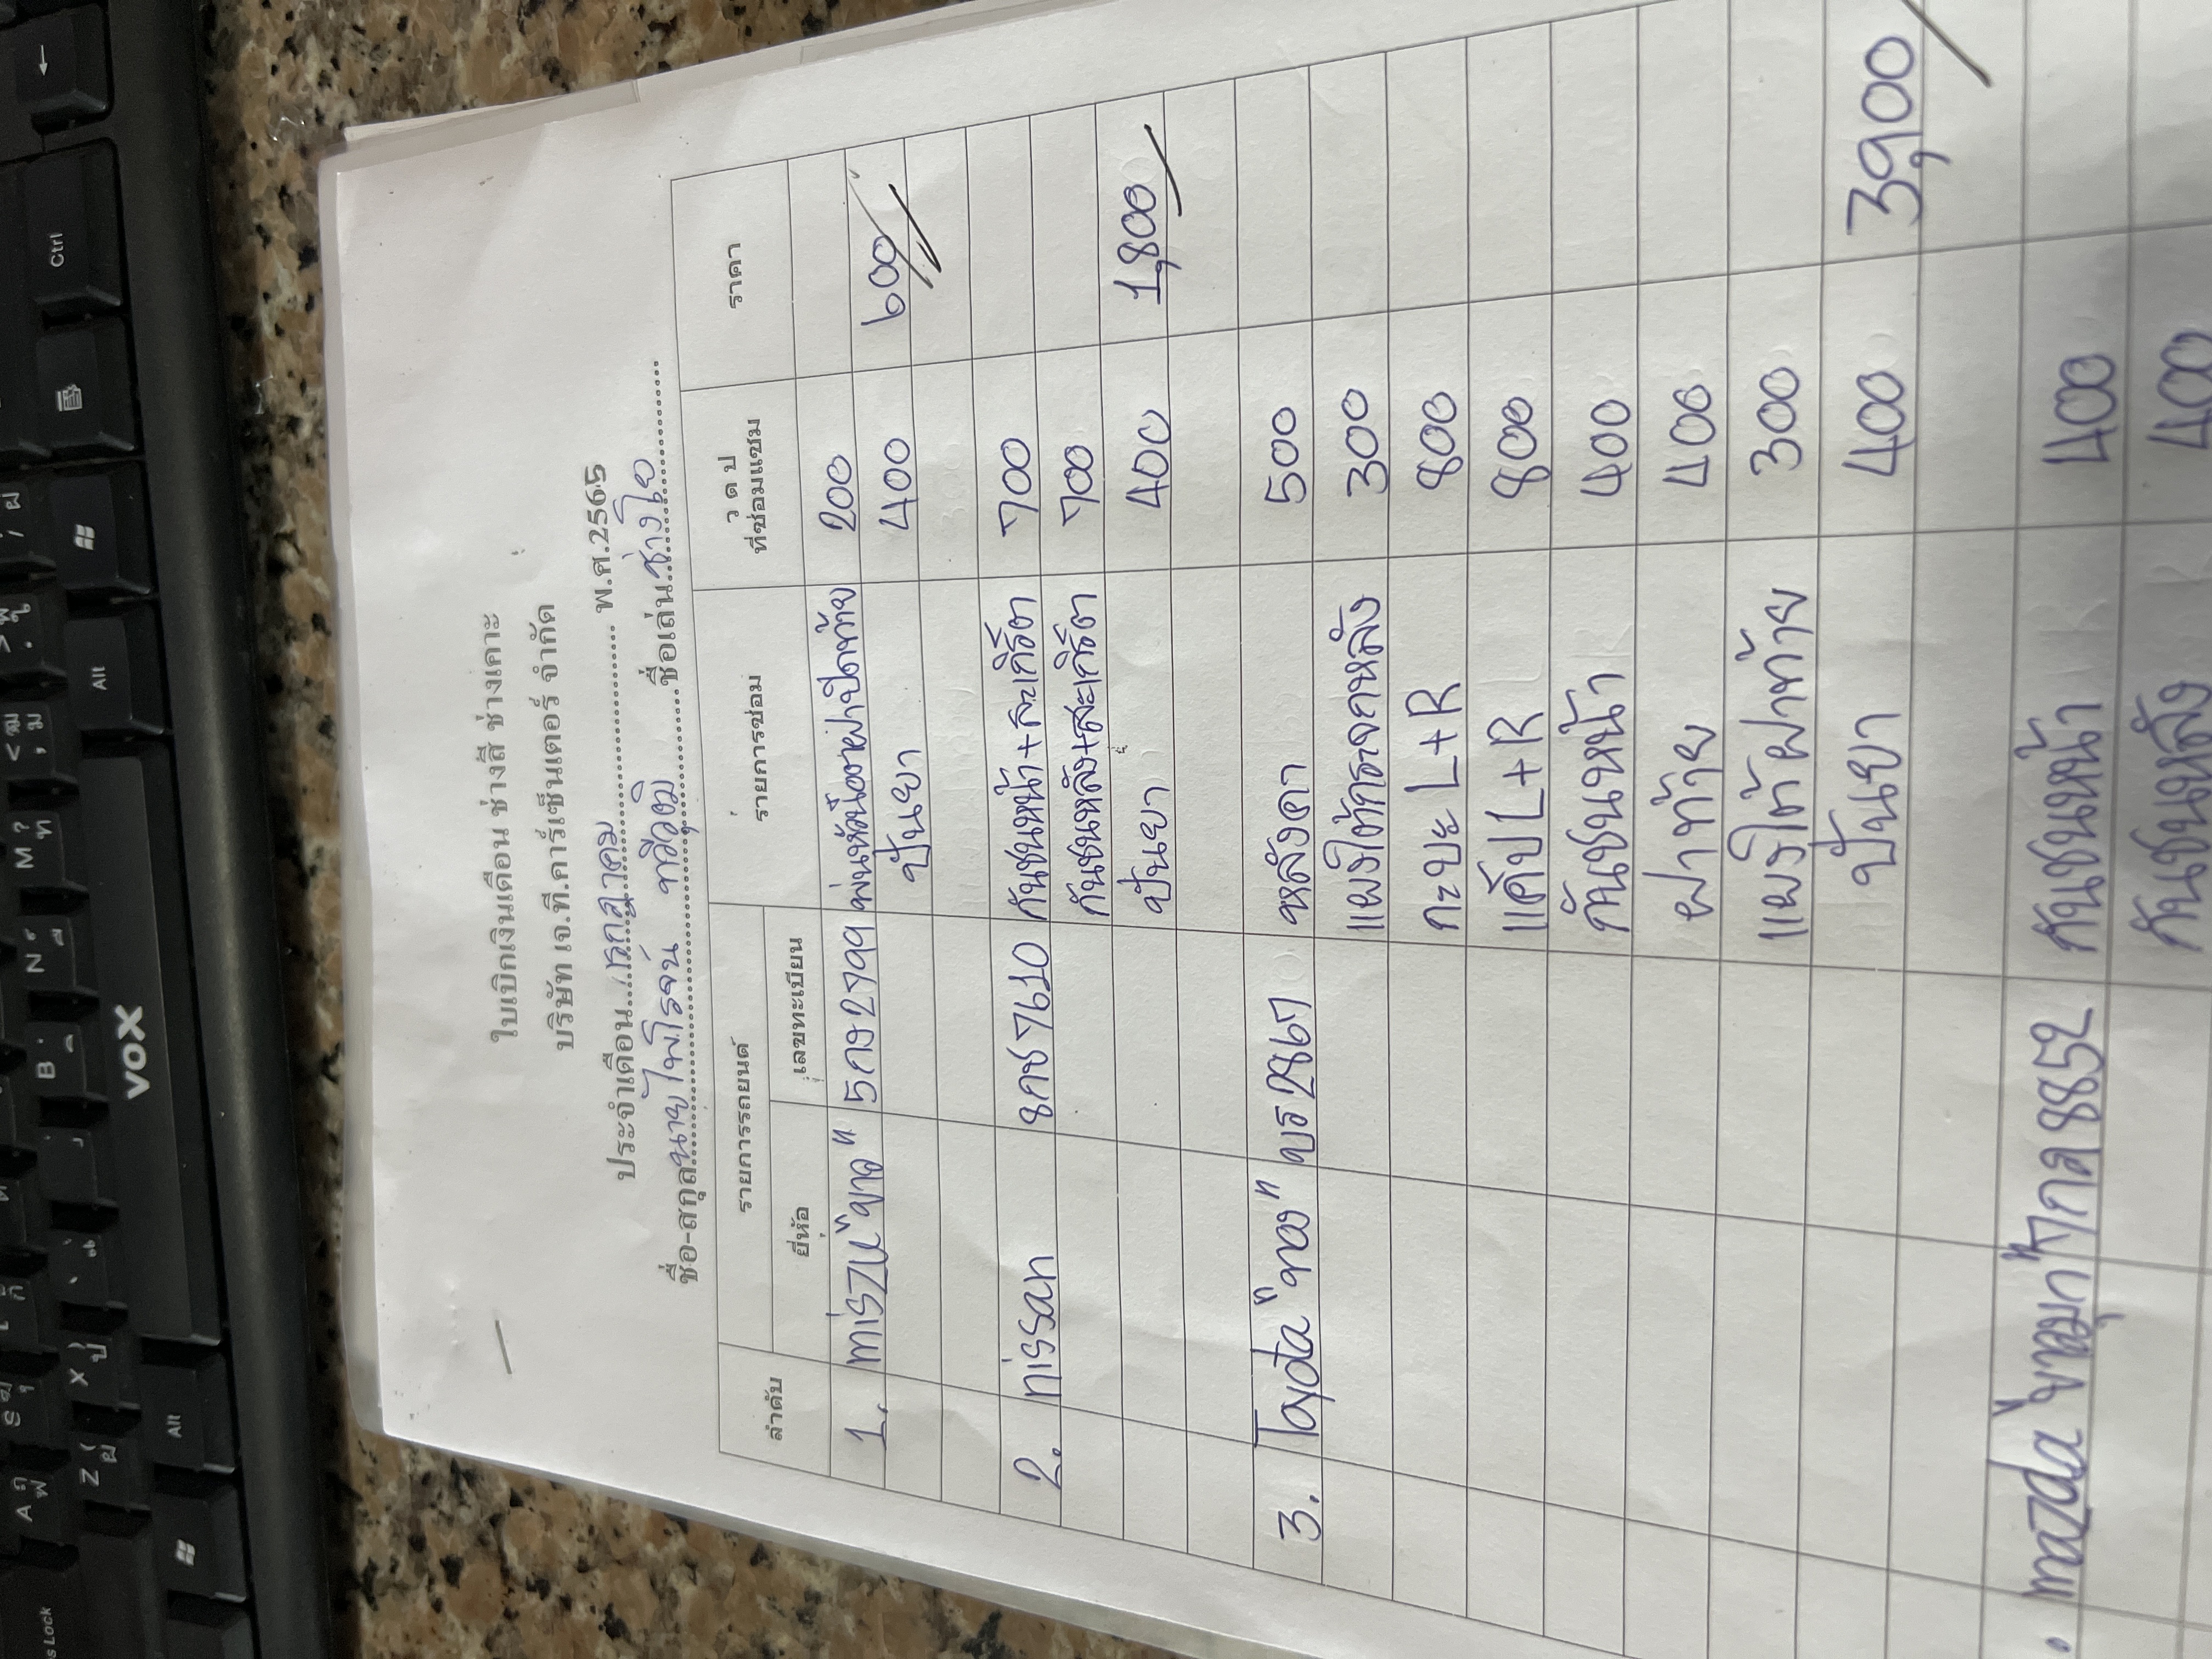 ใบเบิกเงินเดือน ช่างสี ช่างเคาะ
บริษัท เจ.ที.คาร์เซ็นเตอร์ จำกัด
ประจำเดือน...กรกฎาคม... พ.ศ.2565
ชื่อ-สกุล นายไพโรจน์ ทวีวุฒิ ชื่อเล่น ช่างโย
ลำดับ รายการรถยนต์ รายการซ่อม ว ด ป ที่ซ่อมแซม ราคา
ยี่ห้อ เลขทะเบียน
1. miszu "ขาว" 5กง2799 พ่นหัวนีออฝาปิดท้าย 200
ปั่นยา 400 600
2. nissan 8กช7610 กันชนหน้า+สะเกิร์ต 700
กันชนหลัง+สะเกิร์ต 700
ปั่นยา 400 1,800
3. Toyota "ทอง" บร2867 หลังคา 500
แผงใต้กระจกหลัง 300
กะบะ L+R 800
แค้ป L+R 800
กันชนหน้า 400
ฝาท้าย 400
แผงใต้ฝาท้าย 300
ปั่นยา 400 3,900
. mazda "ขาวมุก" 7กล8852 กันชนหน้า 400
กันชนหลัง 400
VOX
Ctrl
Alt
Alt